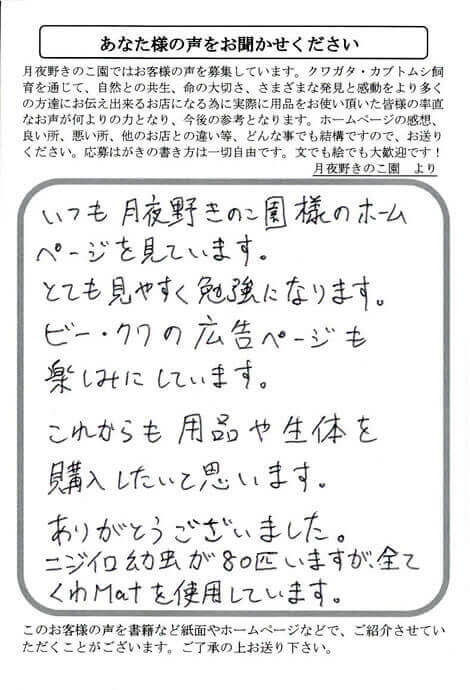 あなた様の声をお聞かせください
月夜野きのこ園ではお客様の声を募集しています。クワガタ・カブトムシ飼
育を通じて、自然との共生、命の大切さ、さまざまな発見と感動をより多く
の方達にお伝え出来るお店になる為に実際に用品をお使い頂いた皆様の率直
なお声が何よりの力となり、今後の参考となります。ホームページの感想、
良い所、悪い所、他のお店との違い等、どんな事でも結構ですので、お送り
ください。応募はがきの書き方は一切自由です。文でも絵でも大歓迎です！
月夜野きのこ園 より
いつも月夜野きのこ園様のホーム
ページを見ています。
とても見やすく勉強になります。
ビー・クワの広告ページも
楽しみにしています。
これからも用品や生体を
購入したいと思います。
ありがとうございました。
ニジイロ幼虫が80匹いますが、全て
くわMatを使用しています。
このお客様の声を書籍など紙面やホームページなどで、ご紹介させてい
ただくことがございます。ご了承の上お送り下さい。